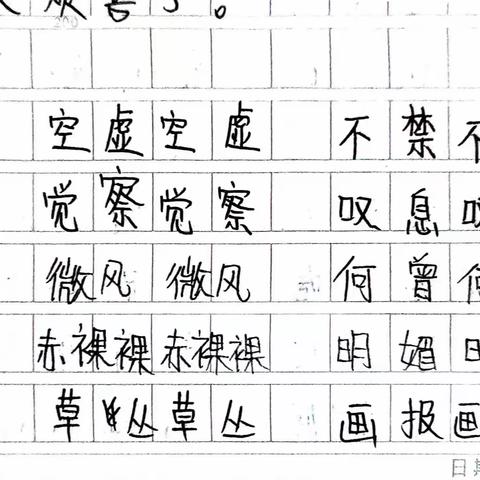 众害了。
空虚空虚 不禁不
觉察觉察 叹息叹
微风微风 何曾何
赤裸裸赤裸裸 明媚明
草丛草丛 画报画
日期